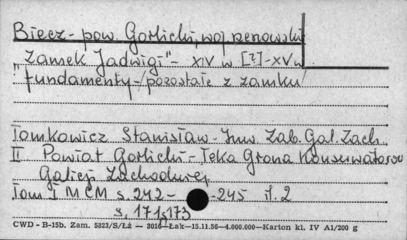 Biecz - pow. Gorlicki, woj. rzeszowskie
"Zamek Jadwigi" - XIV w [?] - XV w
fundamenty - /pozostałe z zamku/
Tomkowicz Stanisław - Inw. Zab. Gal. Zach.
II Powiat Gorlicki - Teka Grona Konserwatorów
Galicji Zachodniej
Tom I MCM s. 242 - 245 il. 2
s. 171, 173
CWD - B-15b. Zam. 5823/S/Łż — 3016 — Łak — 15.11.56 — 4.000.000 — Karton kl. IV A1/200 g